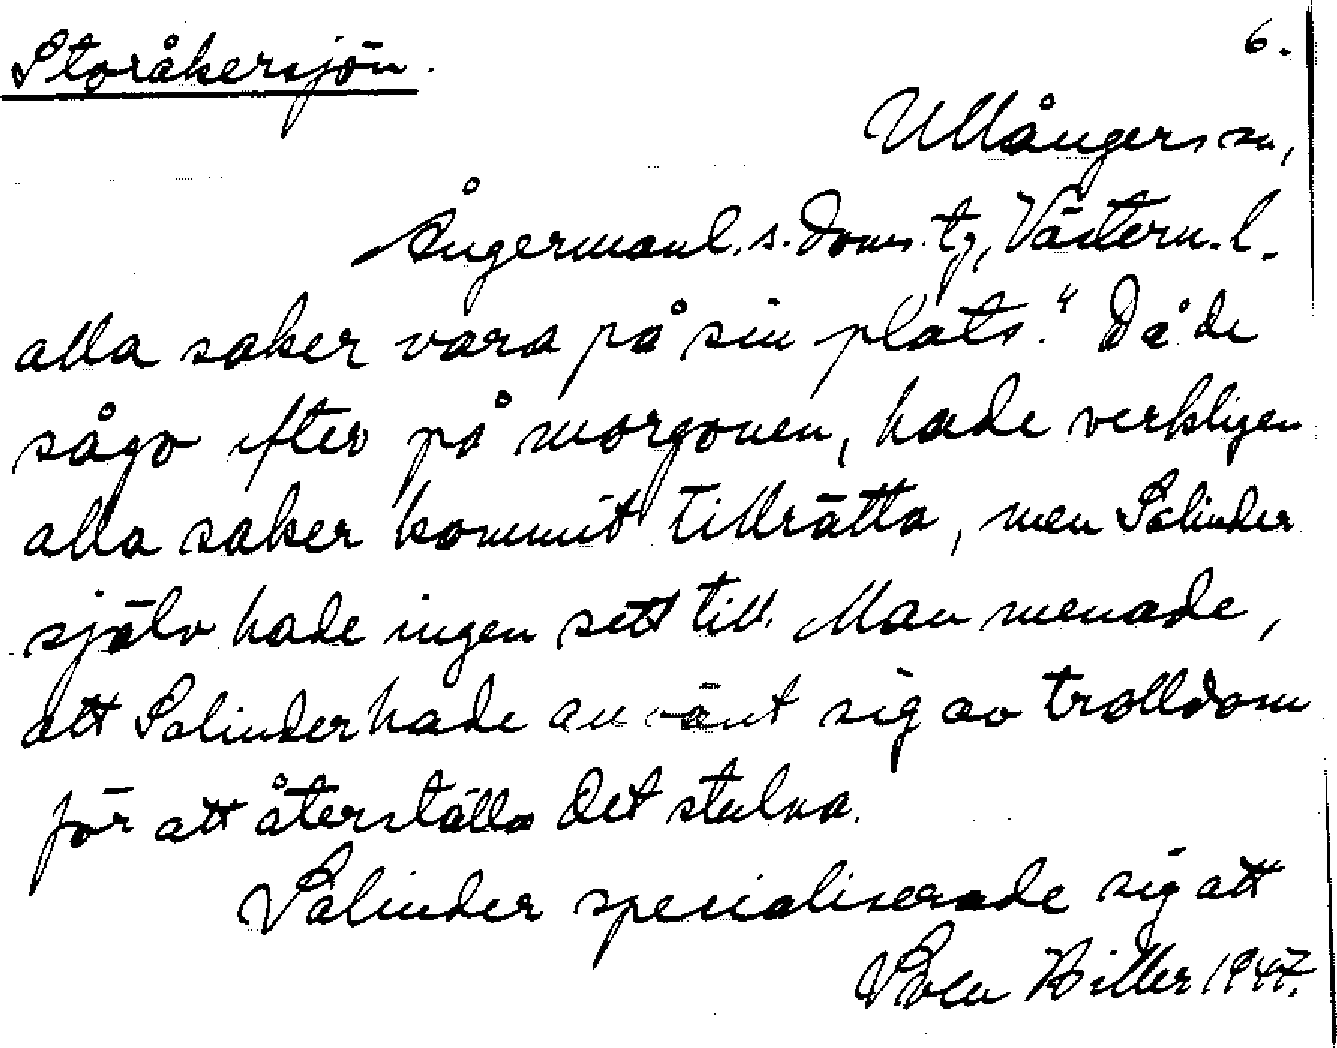 Storåkersjön.
6.
Ullångers sn,
Ångermanl. s. doms. tg, Västern. l.
alla saker vara på sin plats." Då de
sågo efter på morgonen, hade verkligen
alla saker kommit tillrätta, men Salinder
själv hade ingen sett till. Man menade,
att Salinder hade använt sig av trolldom
för att återställa det stulna.
Salinder specialiserade sig att
Sven Hiller 1947.